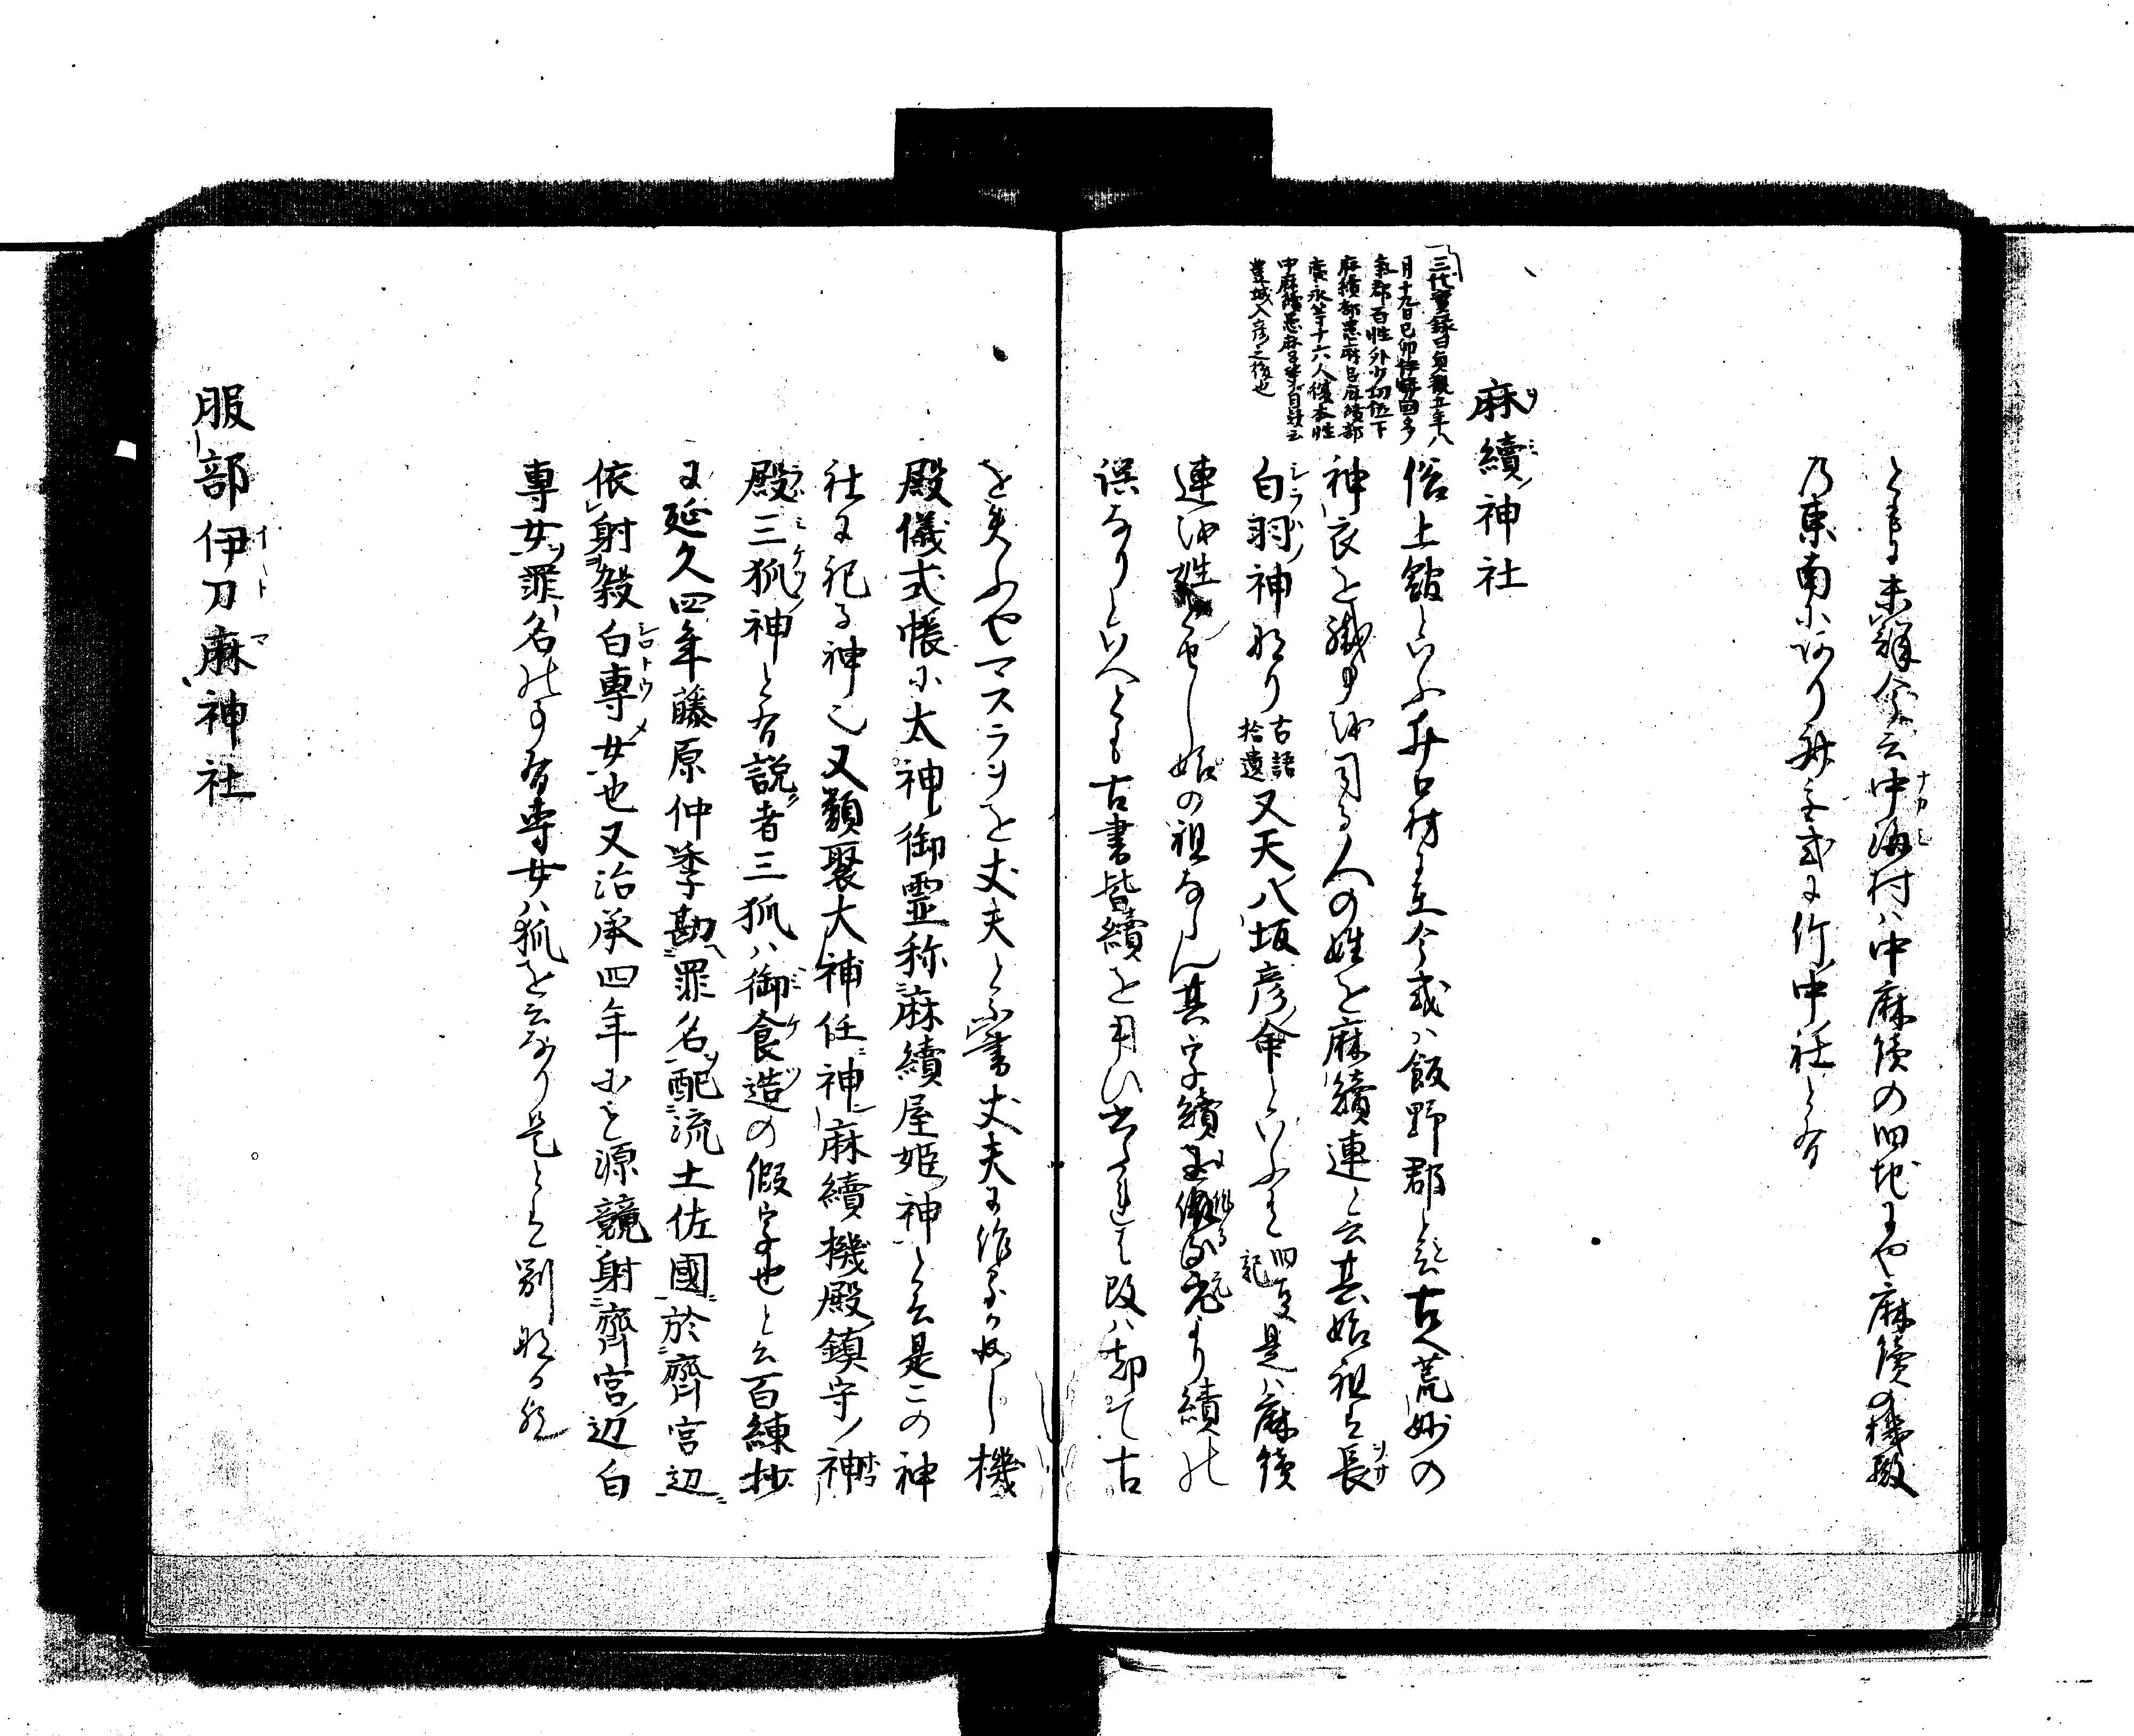 とす未詳今云中海村ハ中麻績の旧地にや麻續の機殿
乃東南にあり舜云或に作中社と有
麻續神社
三代實録曰貞觀五年八
月十九日己卯伊勢国多
氣郡百姓外少初位下
麻續部愚麻呂麻續部
廣永等十六人復本姓
中麻績公愚麻呂等自謂云
豊城入彦之後也
俗上館といふ井口村に在今或ハ飯野郡と云古へ荒妙の
神衣を織事を司る人の姓を麻續連と云其始祖を長
白羽神なり古語拾遺又天八坂彦命といふよし旧事記是ハ麻績
連を姓とせし始の祖ならん其字績に作るより續の
誤なりといへとも古書皆續を用ひ来れは改ハ却て古
を失ふやマスラヲを丈夫と書丈夫に作るか如し機
殿儀式帳に太神御霊称麻續屋姫神と云是この神
社に祀る神也又類聚大補任神麻續機殿鎮守ノ神
殿三狐神と有説者三狐ハ御食造の假字也と云百練抄
に延久四年藤原仲季勘罪名配流土佐國於齊宮辺
依射殺白専女也又治承四年にも源競射齊宮辺白
専女罪名の事有専女ハ狐を云なり是とは別なる歟
服部伊刀麻神社